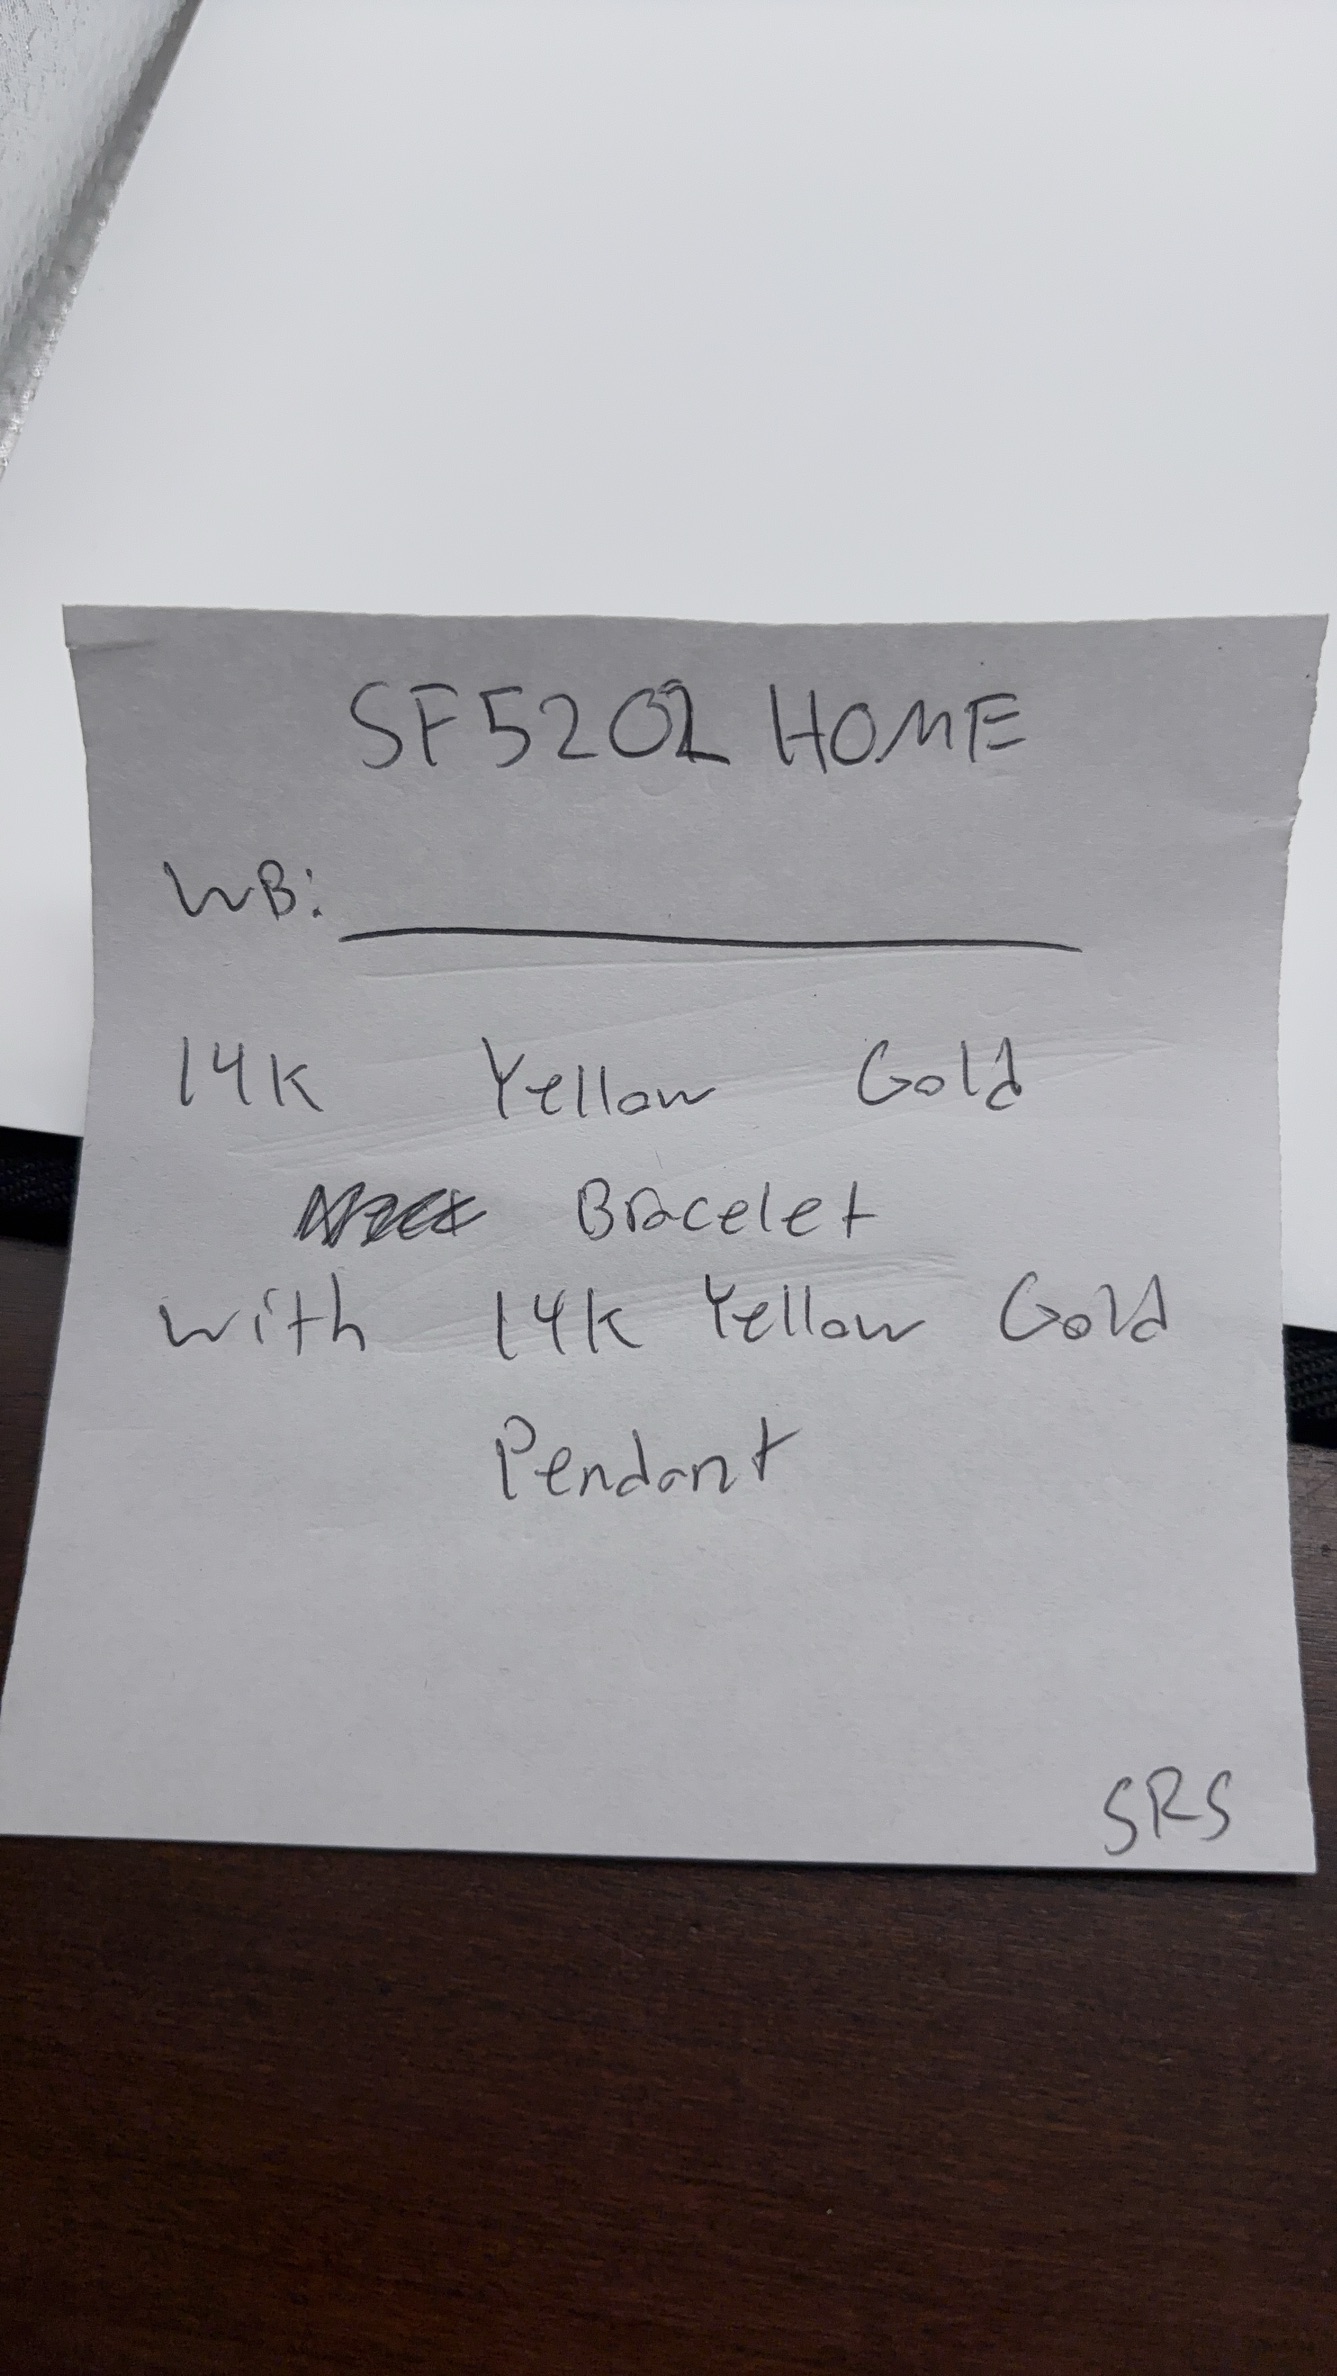 SF5202 HOME
WB:
14K Yellow Gold
Bracelet
with 14K Yellow Gold
Pendant
SRS